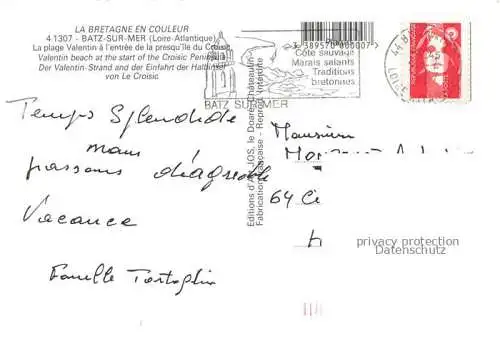 LA BRETAGNE EN COULEUR
41307 - BATZ-SUR-MER (Loire-Atlantique)
La plage Valentin à l'entrée de la presqu'île du Croisic
Valentin beach at the start of the Croisic Peninsula
Der Valentin-Strand und der Einfahrt der Halbinsel
von Le Croisic.
3 389570 000007
Côte sauvage
Marais salants
Traditions
bretonnes
BATZ SUR MER
44 B
LOIRE
Temps Splendide
nous
passons d'agréable
Vacance
Famille Tartaglia
Editions d'Art JOS, le Doaré, Châteaulin
Fabrication Française - Reprod. Interdite
Monsieur
64 C
privacy protection
Datenschutz